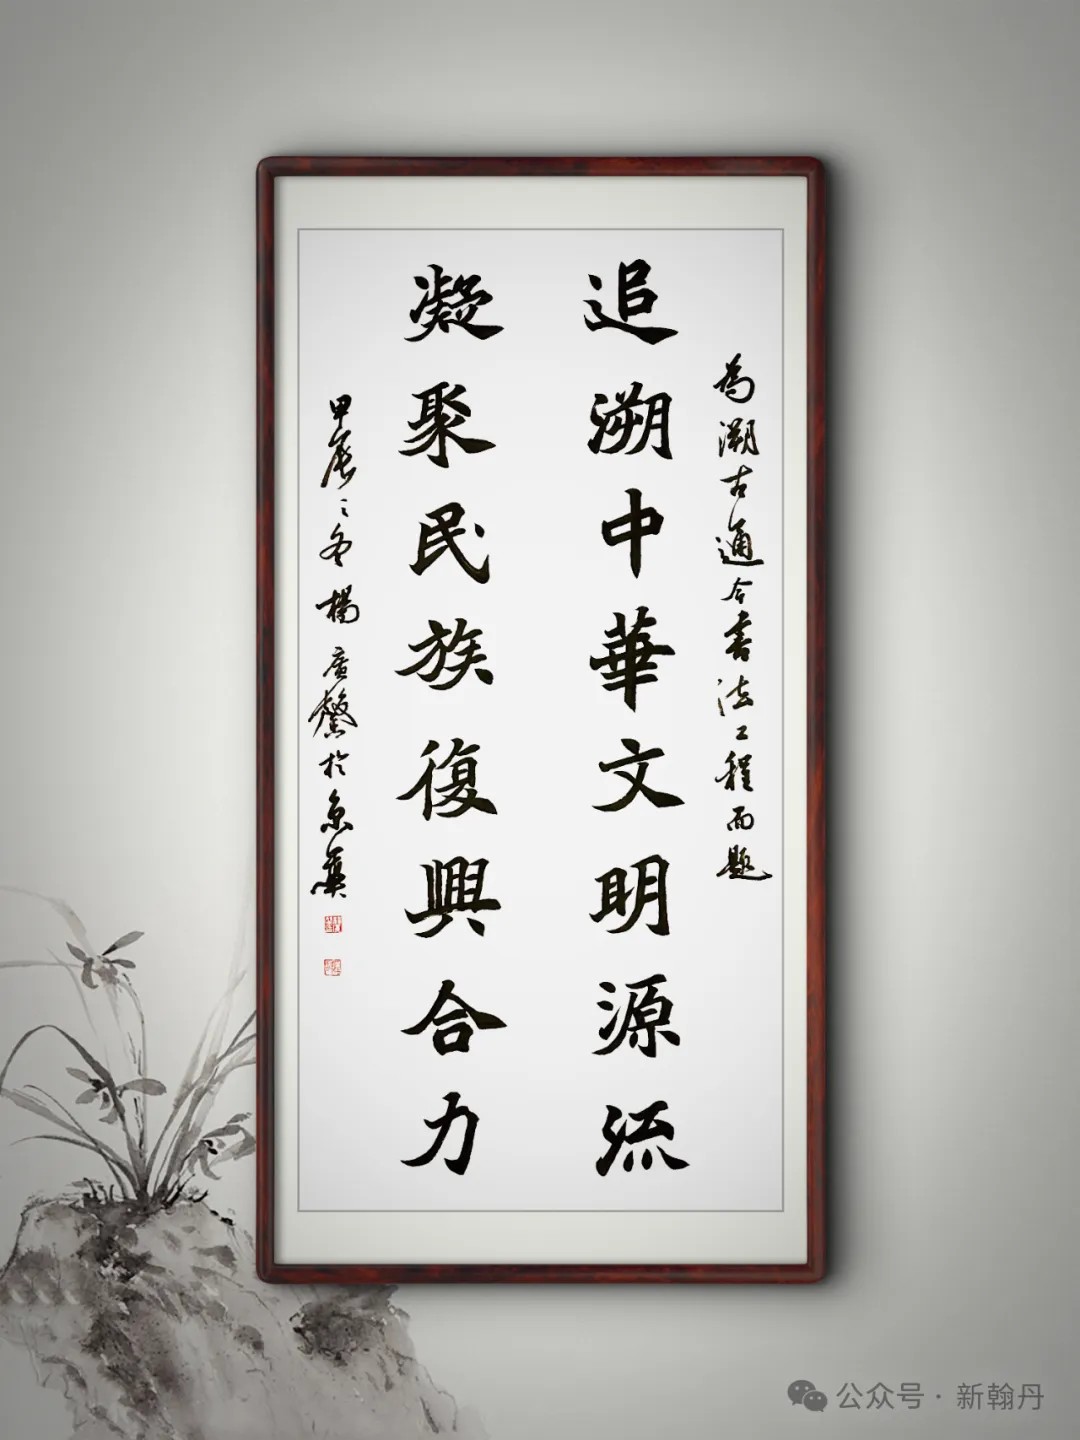 為溯古通今書法工程而題
追溯中華文明源流
凝聚民族復興合力
甲辰之冬楊廣馨於京華
公众号·新翰丹